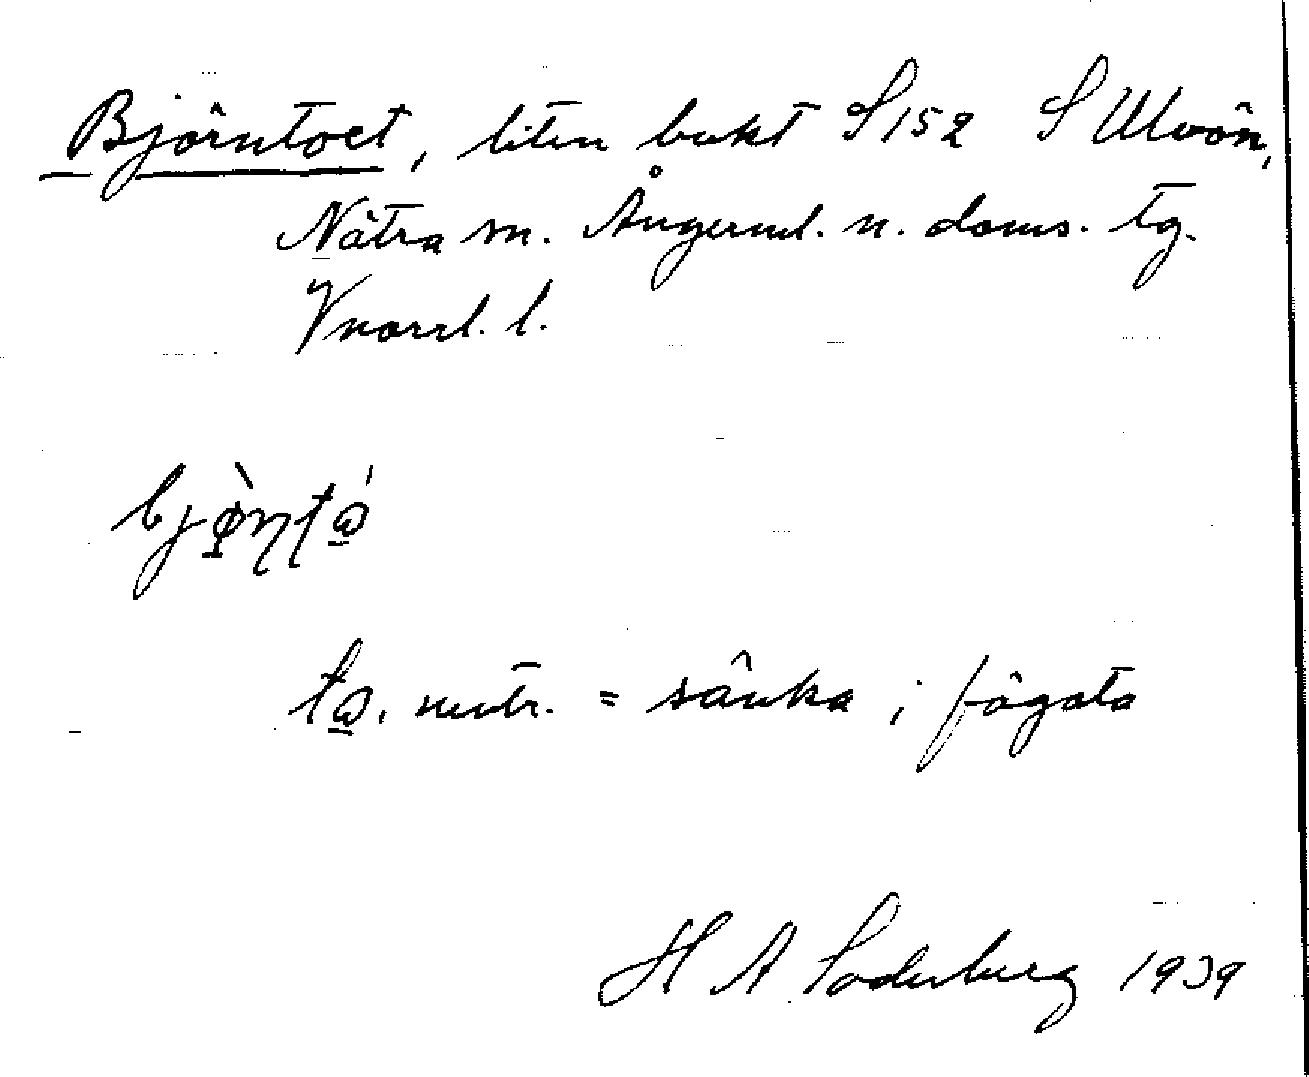 Björntoet, liten bukt S 152 S Ulvön,
Nätra sn. Ångerml. n. doms. tg.
Vnorrl. l.
bjö̀ntå
tå. neutr. = sänka ; fågata
H A Söderberg 1939